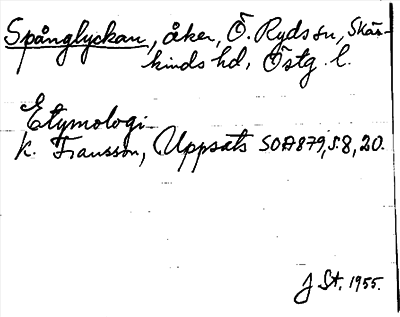 Spånglyckan, åker, Ö. Ryds sn, Skär-
kinds hd, Östg. l.
Etymologi
K. Fransson, Uppsats SOA 879, s. 8, 20.
J St. 1955.